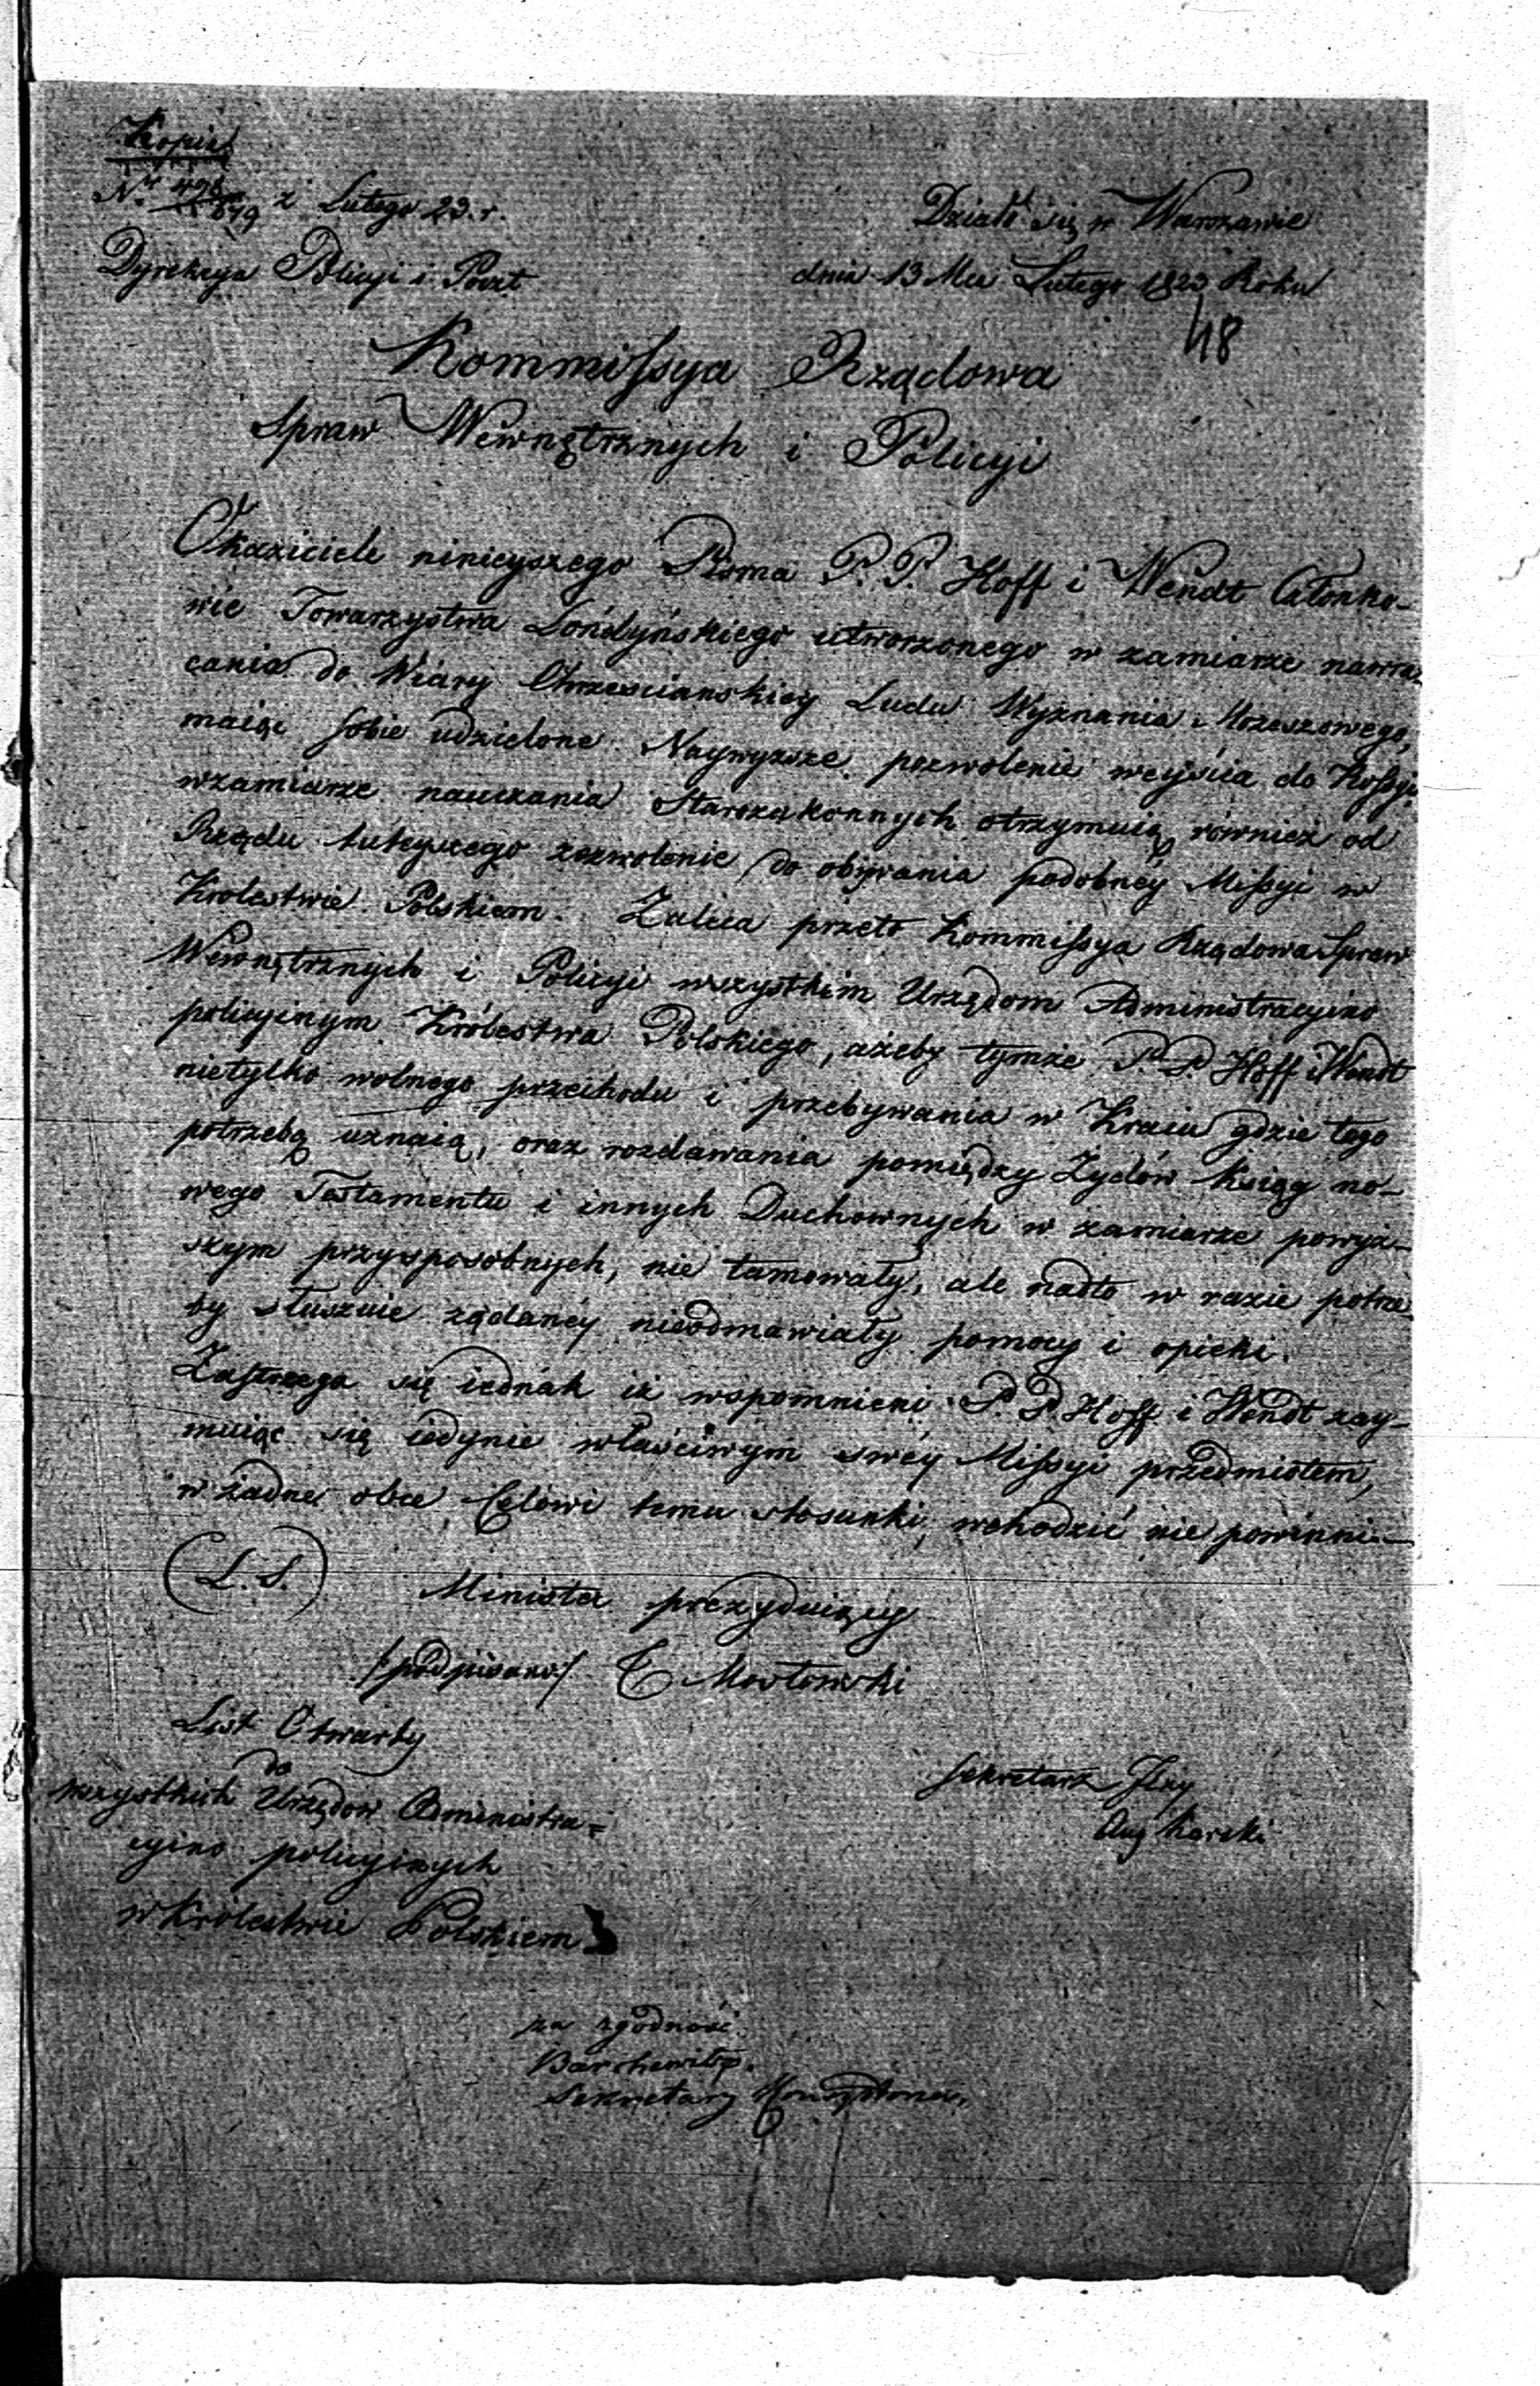 Kopia
N. 498/879 z Lutego 23. r.
Działo się w Warszawie
Dyrekcya Policyi i Poczt
dnia 13 Mca Lutego 1823 Roku
48
Kommissya Rządowa
Spraw Wewnętrznych i Policyi
Okaziciele ninieyszego Pisma P. P. Hoff i Wendt Członko-
wie Towarzystwa Londyńskiego utworzonego w zamiarze nawra-
cania do Wiary Chrzescianskiey Ludu Wyznania Mozeszowego,
maiąc sobie udzielone Naywyzsze pozwolenie weyscia do Rossyi
wzamiarze nauczania Starozakonnych otrzymuią również od
Rządu tuteyszego zezwolenie do obiawiania podobney Missyi w
Krolestwie Polskiem. Zaleca przeto Kommissya Rządowa Spraw
Wewnętrznych i Policyi wszystkim Urzędom Administracyino
policyinym Królestwa Polskiego, ażeby tymże P. P. Hoff i Wendt
nietylko wolnego przechodu i przebywania w Kraiu gdzie tego
potrzebą uznaią, oraz rozdawania pomiędzy Zydów Ksiąg no-
wego Testamentu i innych Duchownych w zamiarze powyż-
szym przysposobnych, nie tamowały, ale nadto w razie potrze
by słusznie żądaney nieodmawiały pomocy i opieki.
Zastrzega się iednak iż wspomnieni P. P. Hoff i Wendt zay-
muiąc się iedynie właściwym swey Missyi przedmiotem,
w żadne obce Celowi temu stosunki, wchodzić nie powinni.—
(L. S.)
Minister prezyduiący
/podpisano/ T Mostowski
List Otwarty
do
wszystkich Urzędow Administra=
cyino policyinych
w Królestwie Polskiem
Sekretarz Jlny
Aug Karski
za zgodność
Sekretarz